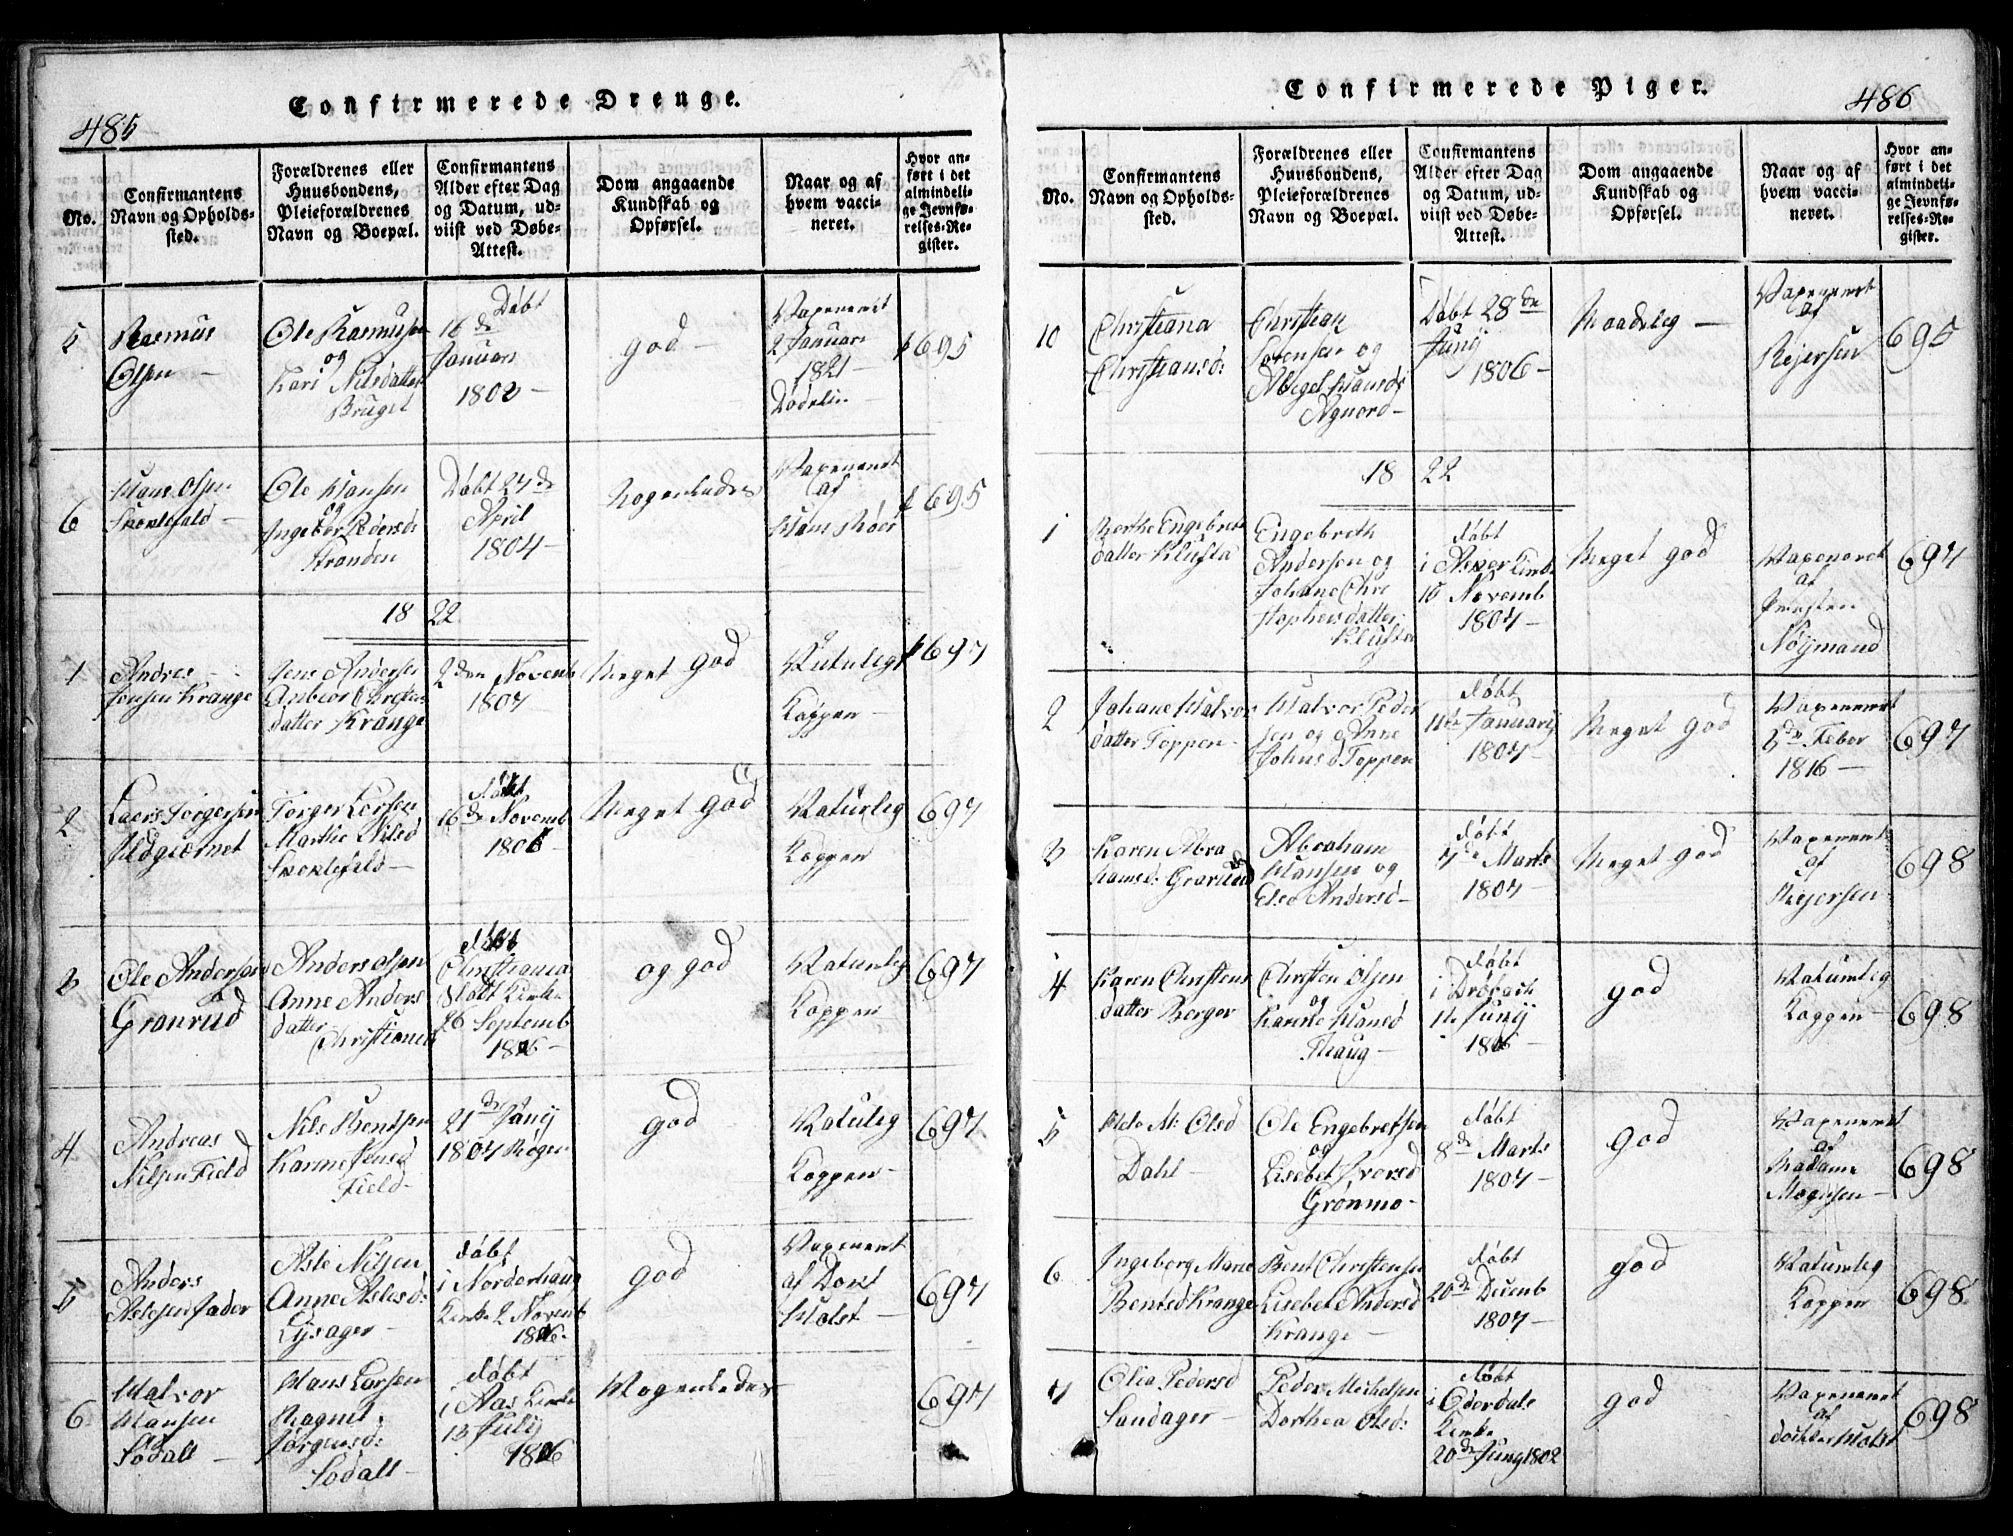 485
Confirmerede Drenge.
No.
Confirmantens
Navn og Opholds-
sted.
Forældrenes eller
Huusbondens,
Pleieforældrenes
Navn og Boepæl.
Confirmantens
Alder efter Dag
og Datum, ud-
viist ved Døbe-
Attest.
Dom angaaende
Kundskab og
Opførsel.
Naar og af
hvem vacci-
neret.
Hvor an-
ført i det
almindeli-
ge Jevnfø-
relses-Re-
gister.
5
Rasmus
Olsen
Ole Rasmusen
og
Kari Nilsdatter
Bruget
Døbt
16 de
Januari
1802
god
Vaxeneret
2 Januari
1821
Dødelin
695
6
Hans Olsen
Skoklefald
Ole Hansen
og
Ingebor Pedersd:
Stranden
Døbt 24 de
April
1804
Nogenledes
Vaxeneret
af
Hans Moer
695
18 22
1
Andres
Jensen Krange
Jens Andersen
Anbior Christens
datter Krange
2 den Novemb
1807
Meget god
Naturligt
Kopper
697
2
Laers Torgersen
Ildgiernet
Torger Larsen
Marthe Nilsd
Skoklefald
døbt
16 de Novemb
1806
Meget god
Naturlig
Kopper
697
3
Ole Andersen
Grønrud
Anders Olsen
Anne Anders
datter
Christianen
døbt
Christiania
Slott Kirke
26 Septemb
1806
og god
Naturlig
Kopper
697
4
Andreas
Nilsen Field
Nils Bentsen
Karine Jensd
Field
21 de Junij
1807 Røgen
god
Naturlig
Kopper
697
5
Anders
Aslesen Jader
Asle Nilsen
Anne Aslesd:
Lysager
døbt
i Norderhaug
Kirke 2 Novemb
1806
god
Vaxeneret
af Doct
Holst
697
6
Halvor
Hansen
Sødall
Hans Larsen
Ragnil
Jørgensd:
Sødall
døbt
i Aas Kirke
13 Julij
1806
Nogenledes
697
Confirmerede Piger.
486
No.
Confirmantens
Navn og Opholds-
sted.
Forældrenes eller
Huusbondens,
Pleieforældrenes
Navn og Boepæl.
Confirmantens
Alder efter Dag
og Datum, ud-
viist ved Døbe-
Attest.
Dom angaaende
Kundskab og
Opførsel.
Naar og af
hvem vacci-
neret.
Hvor an-
ført i det
almindeli-
ge Jevnfø-
relses-Re-
gister.
10
Christiana
Christiansd:
Christian
Sørensen og
Abegel Hansd:
Agnord
Døbt 28 de
Junij
1806
Maadelig
Vaxeneret
af
Rejersen
695
18 22
1
Berthe Engebret
datter Klufta
Engebreth
Andersen og
Johane Chri
stophersdatter
Klufta
døbt
i Asker Kirke
15 Novemb
1807
Meget god
Vaxeneret
af
Presten
Nøijmand
697
2
Johane Halvors
datter Toppen
Halvor Peder
sen og Anne
Johnsd Toppen
døbt
11 de Januarij
1807
Meget god
Vaxeneret
3 de Febor
1816
697
3
Karen Abra
hamsd: Granlund
Abraham
Hansen og
Else Andersd
døbt
7 de Marts
1807
Meget god
Vaxeneret
af
Reyersen
698
4
Karen Christens
datter Berger
Christen Olsen
og
Karene Hansd
Thaug
døbt
i Drøback
11 Junij
1806
god
Naturlig
Kopper
698
5
M: Olsd
Dahl
Ole Engebretsen
og
Lisebet Iversd
Grønmo
døbt
8 de Marts
1807
god
Vaxeneret
af
Madame
Mognsen
698
6
Ingeborg Marie
Bentsd Krange
Bent Christensen
Lisebet Andersd
Krange
døbt
20 de Decemb
1807
god
Naturlig
Kopper
698
7
Olia Pedersd
Sandager
Peder Michelsen
Dorthea Olsd:
døbt
i Oderdale
Kirke
20 de Juny 1802
god
Vaxeneret
af
docter Holst
698